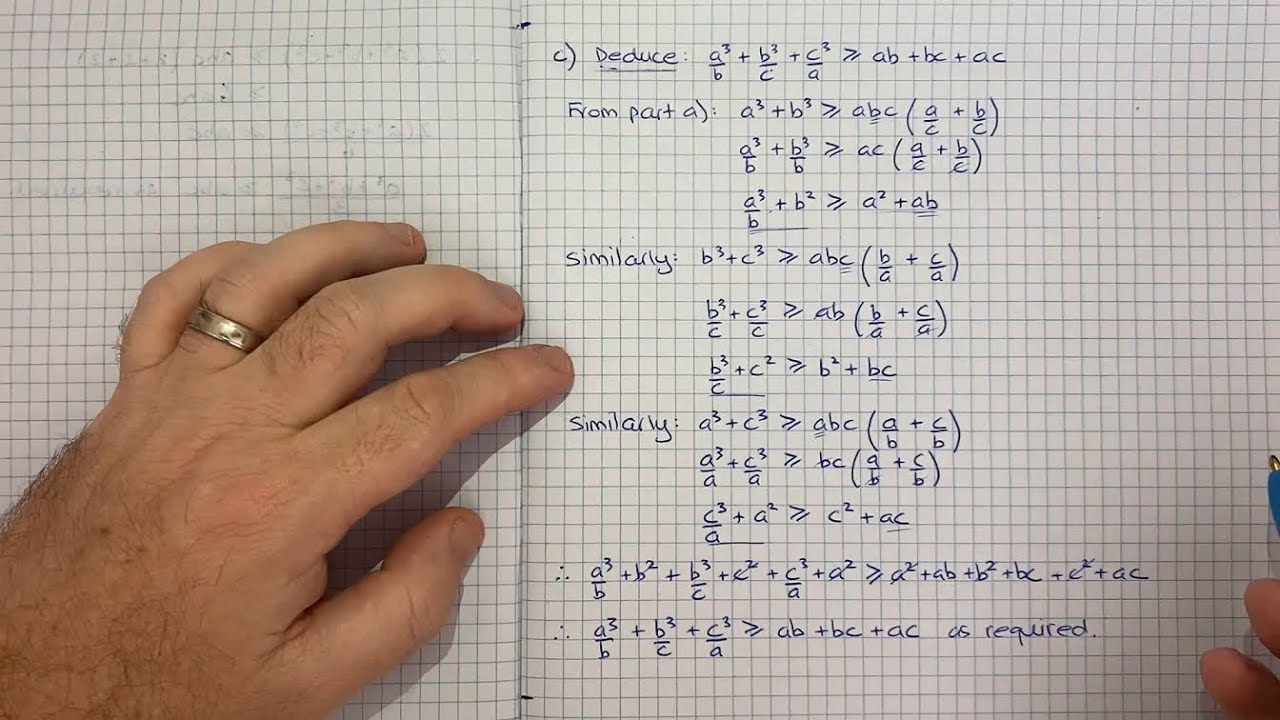 c) Deduce: a³/b + b³/c + c³/a ⩾ ab + bc + ac
From part a): a³ + b³ ⩾ abc (a/c + b/c)
a³/b + b³/b ⩾ ac (a/c + b/c)
a³/b + b² ⩾ a² + ab
Similarly: b³ + c³ ⩾ abc (b/a + c/a)
b³/c + c³/c ⩾ ab (b/a + c/a)
b³/c + c² ⩾ b² + bc
Similarly: a³ + c³ ⩾ abc (a/b + c/b)
a³/a + c³/a ⩾ bc (a/b + c/b)
c³/a + a² ⩾ c² + ac
∴ a³/b + b² + b³/c + c² + c³/a + a² ⩾ a² + ab + b² + bc + c² + ac
∴ a³/b + b³/c + c³/a ⩾ ab + bc + ac as required.